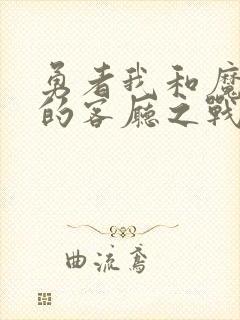 勇者我和魔
的客廳之戰
曲流鸢